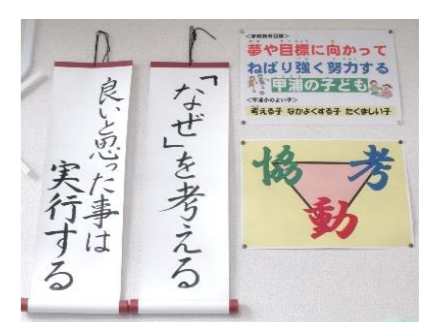 「なぜ」を考える
良いと思った事は
実行する
<学校教育目標>
夢や目標に向かって
ねばり強く努力する
甲浦の子ども
<甲浦小のよい子>
考える子 なかよくする子 たくましい子
協 考
動